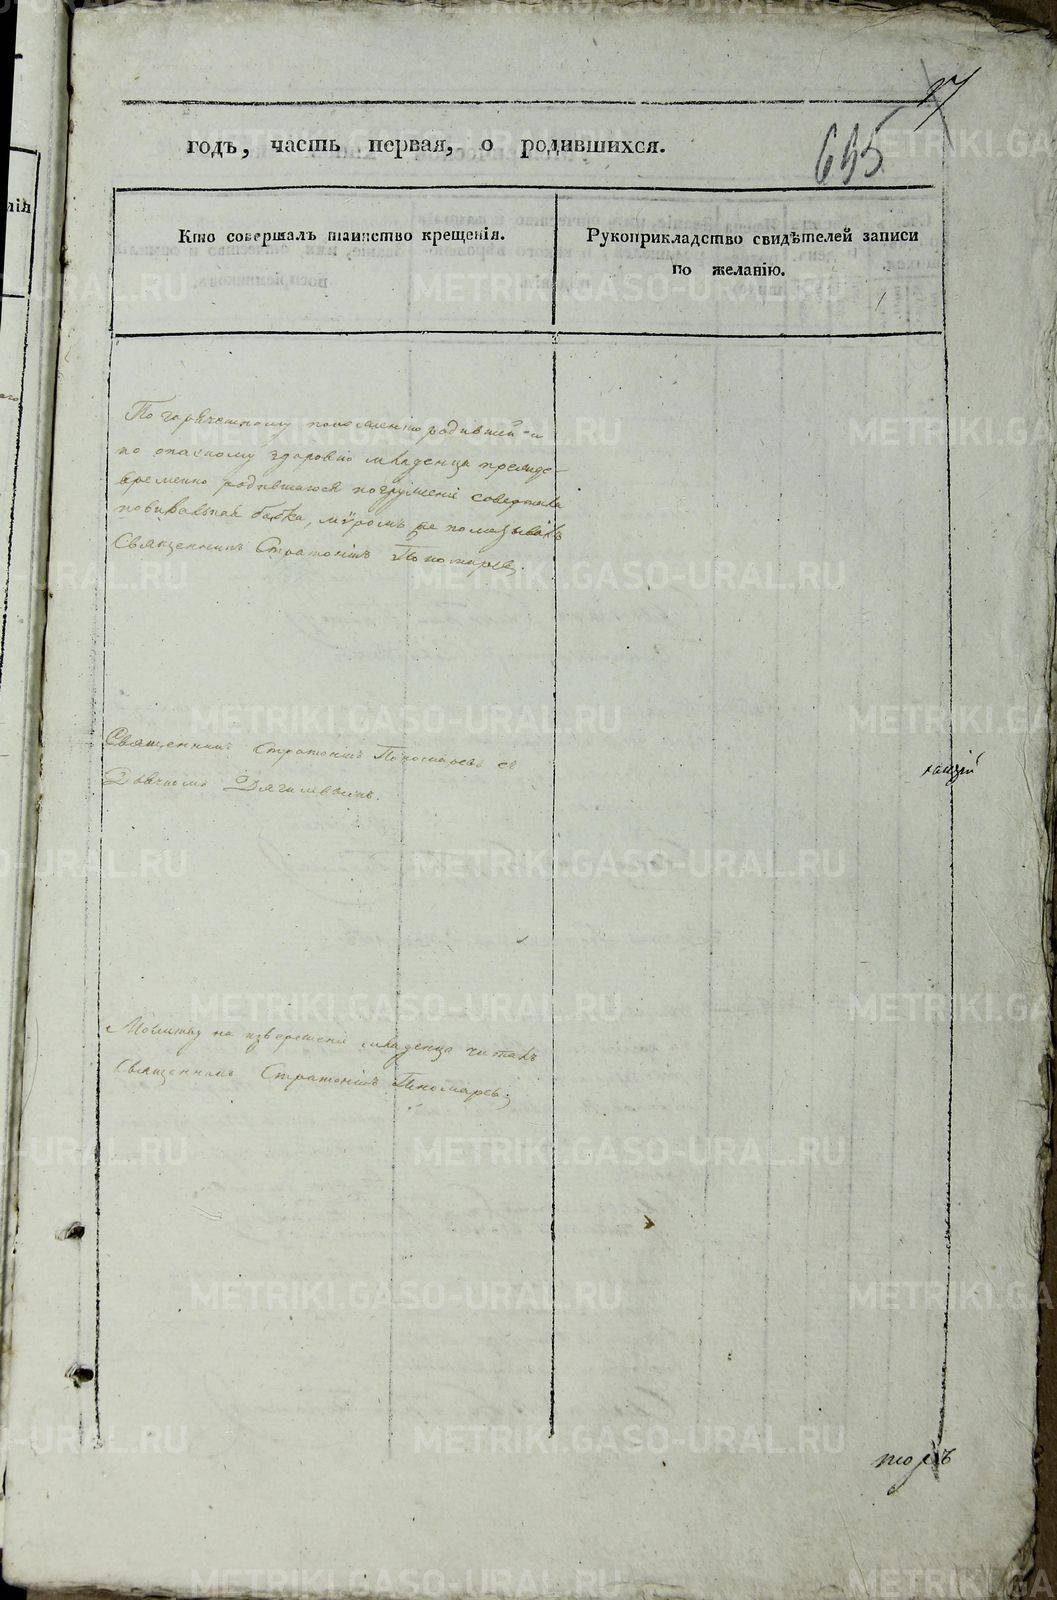 17
655
годъ, часть первая, о родившихся.
Кто совершалъ таинство крещенія.
Рукоприкладство свидѣтелей записи
по желанію.
По горячешному положенію родившей и
по опасному здоровію младенца прежде-
временно родившагося погруженіе совершила
повивальная бабка, мѵромъ не помазывалъ
Священникъ Стратоникъ Пономаревъ.
Священникъ Стратоникъ Пономаревъ съ
Дьячкомъ Дягилевымъ.
Молитву на извержение младенца читалъ
священникъ Стратоникъ Пономаревъ.
METRIKI.GASO-URAL.RU